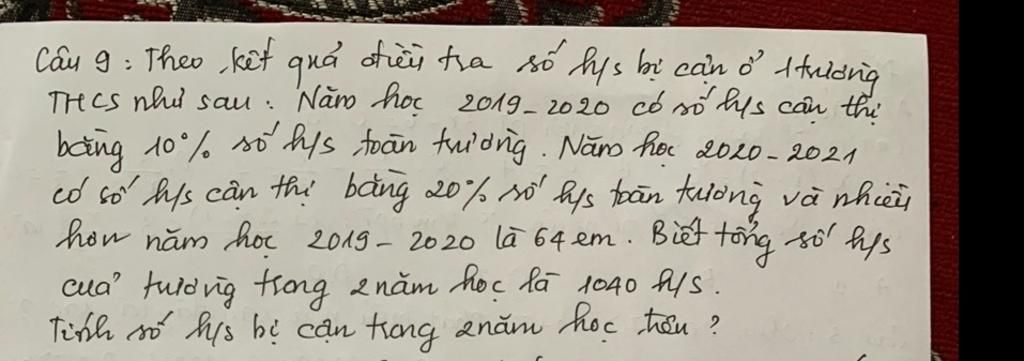 Câu 9: Theo kết quả điều tra số h/s bị cận ở 1 trường
THCS như sau: Năm học 2019-2020 có số h/s cận thị
bằng 10% số h/s toàn trường. Năm học 2020-2021
có số h/s cận thị bằng 20% số h/s toàn trường và nhiều
hơn năm học 2019-2020 là 64 em. Biết tổng số h/s
của trường trong 2 năm học là 1040 h/s.
Tính số h/s bị cận trong 2 năm học trên?